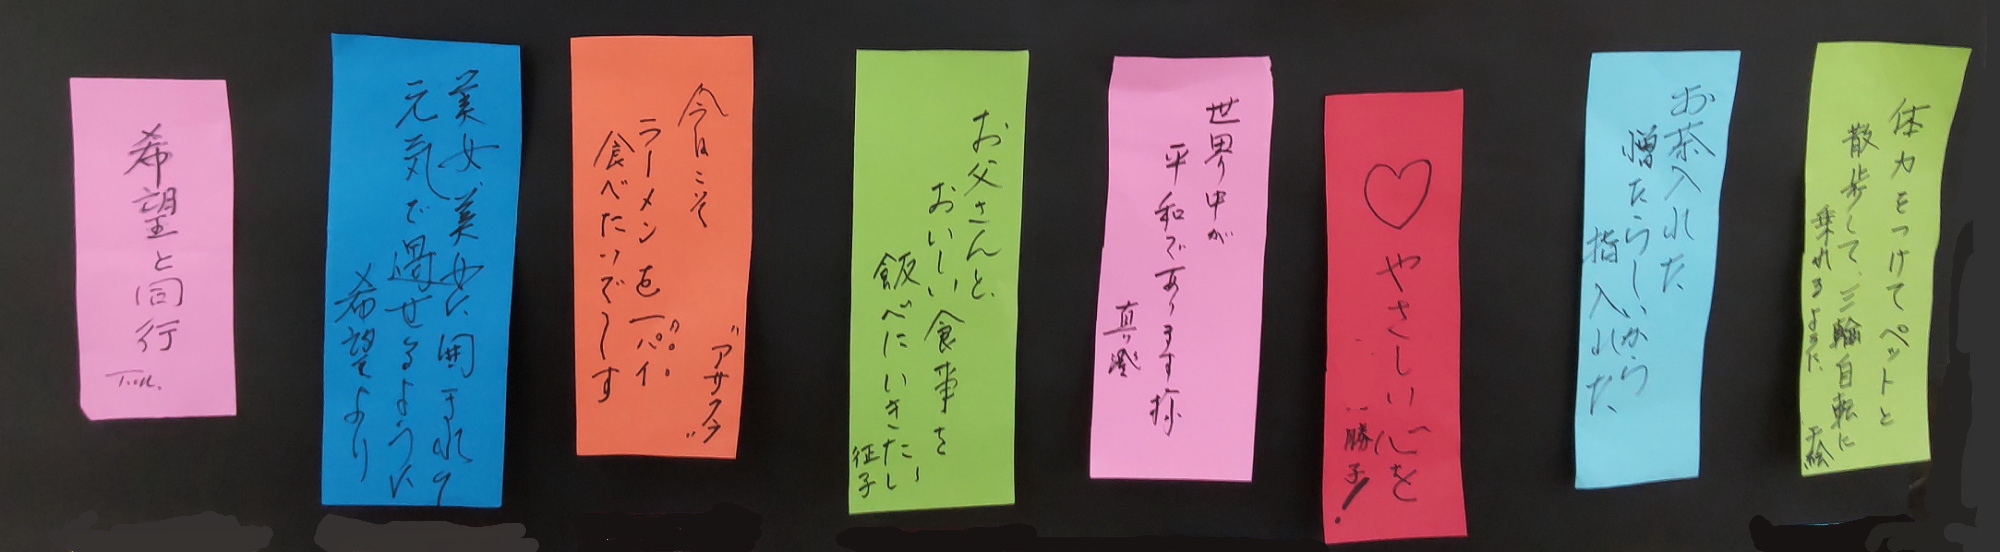 希望と同行
T.M.
美女、美女に囲まれ
元気で過せるように
希望より
今日こそ
ラーメンを一パイ
食べたいでーす
"アサヲ"
お父さんと、
おいしい食事を
飯べにいきたい
征子
世界中が
平和であります様
真澄
♡やさしい心を!
勝子
お茶入れた
憎たらしいから
指入れた
体力をつけてペットと
散歩して、三輪自転に
乗れるように